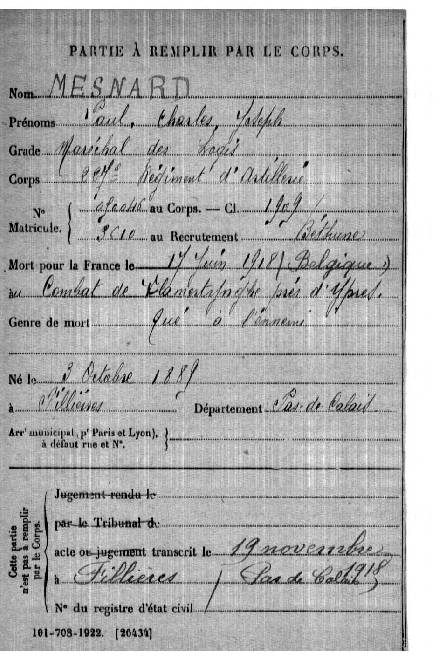 PARTIE À REMPLIR PAR LE CORPS.
Nom MESNARD
Prénoms Paul, Charles, Joseph
Grade Maréchal des Logis
Corps Régiment d'Artillerie
N° Matricule. { au Corps. — Cl. 1909
au Recrutement Béthune
Mort pour la France le 17 Juin 1918 (Belgique)
au Combat de Vlamertynghe près d'Ypres.
Genre de mort Tué à l'ennemi
Né le 3 Octobre 1889
à Fillièves Département Pas-de-Calais
Arrt municipal, pr Paris et Lyon), à défaut rue et N°. }
Cette partie n'est pas à remplir par le Corps.
Jugement rendu le
par le Tribunal de
acte ou jugement transcrit le 19 novembre 1918
à Fillieres (Pas de Calais)
N° du registre d'état civil
101-708-1922. [26434]